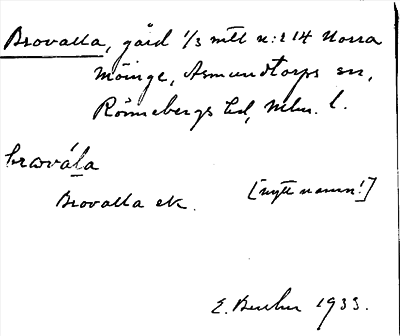 Brovalla, gård 1/3 mtl n:r 14 Norra
Möinge, Asmundtorps sn,
Rönnebergs hd, Mlm. l.
brωvála
Brovalla ek. [nytt namn!]
E. 1933.